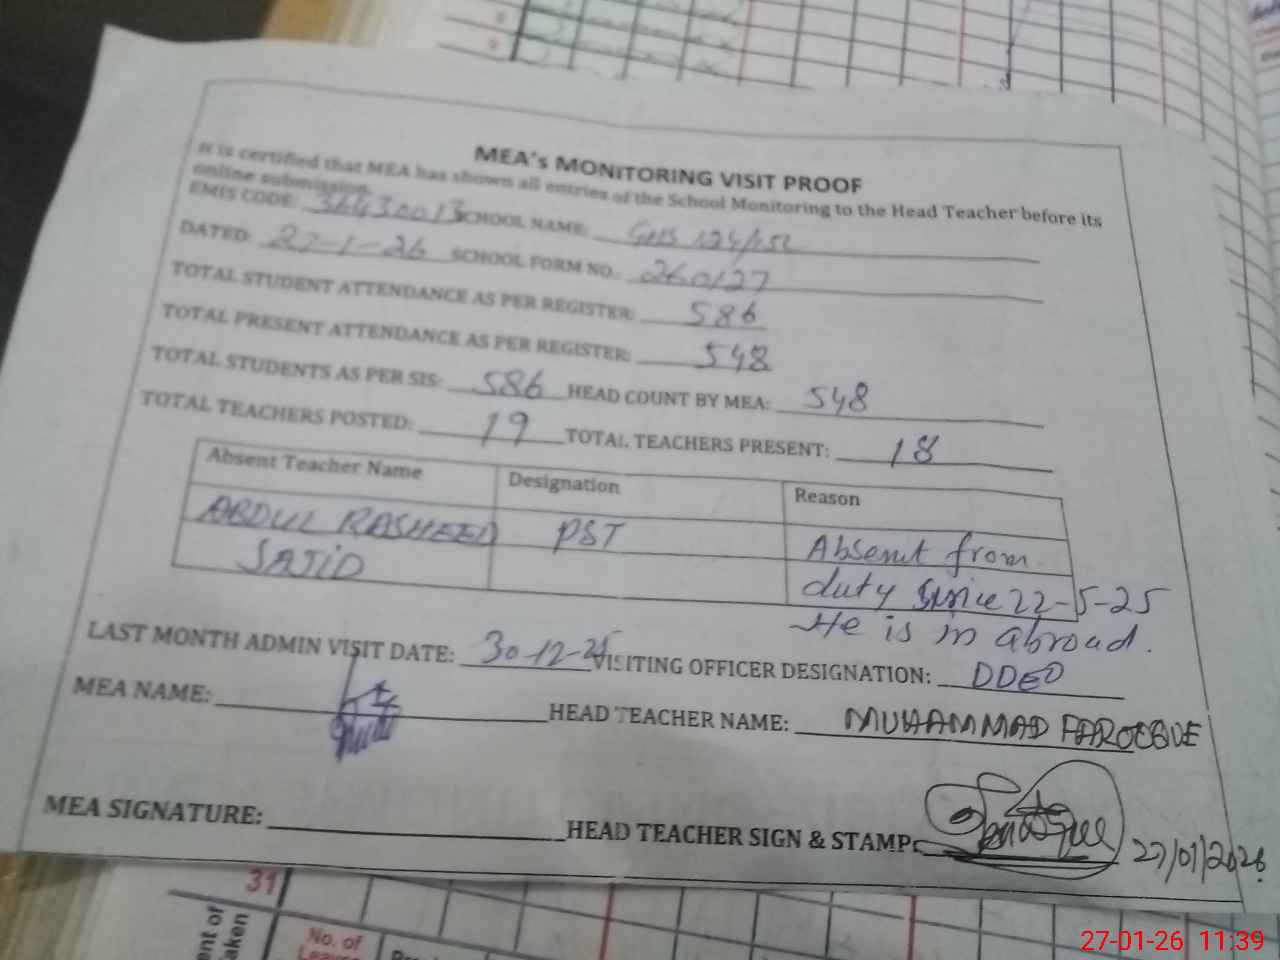 MEA's MONITORING VISIT PROOF
It is certified that MEA has shown all entries of the School Monitoring to the Head Teacher before its
online submission.
EMIS CODE: 36430013 SCHOOL NAME: GHS 124/15L
DATED: 27-1-26 SCHOOL FORM NO.: 260127
TOTAL STUDENT ATTENDANCE AS PER REGISTER: 586
TOTAL PRESENT ATTENDANCE AS PER REGISTER: 548
TOTAL STUDENTS AS PER SIS: 586 HEAD COUNT BY MEA: 548
TOTAL TEACHERS POSTED: 19 TOTAL TEACHERS PRESENT: 18
Absent Teacher Name Designation Reason
ABDUL RASHEED PST Absent from
SAJID duty since 22-5-25
He is in abroad.
LAST MONTH ADMIN VISIT DATE: 30-12-25 VISITING OFFICER DESIGNATION: DDEO
MEA NAME: HEAD TEACHER NAME: MUHAMMAD FAROOQUE
MEA SIGNATURE: HEAD TEACHER SIGN & STAMP: 27/01/2026
31
No. of
27-01-26 11:39